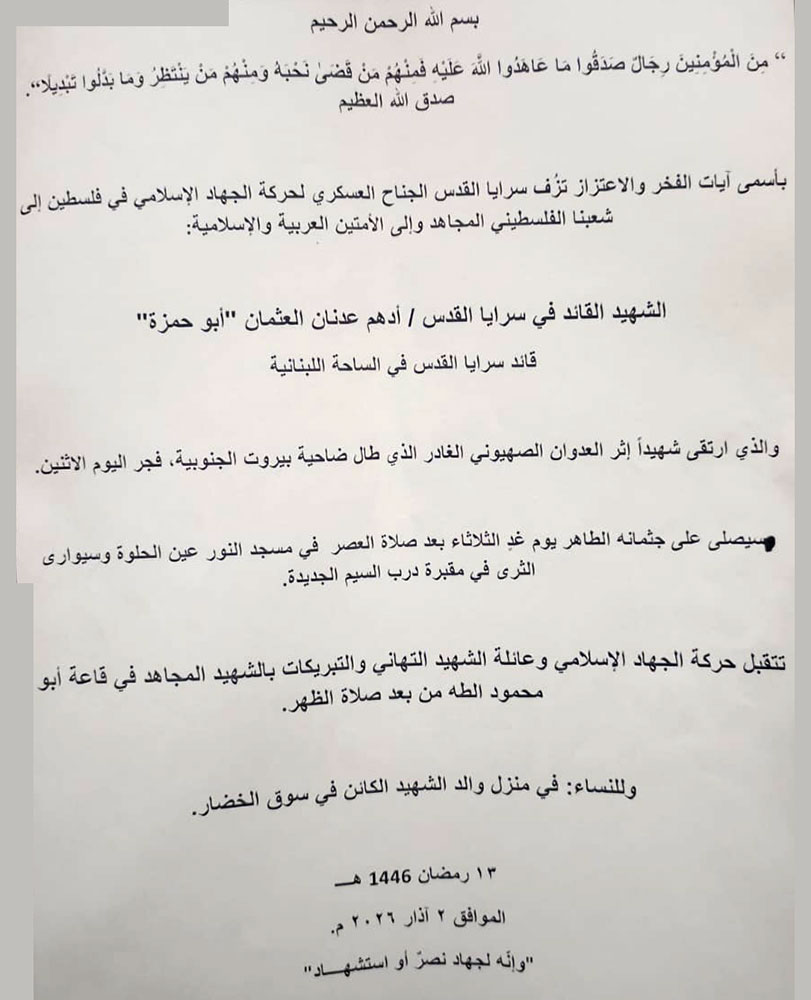 بسم الله الرحمن الرحيم
“ مِنَ الْمُؤْمِنِينَ رِجَالٌ صَدَقُوا مَا عَاهَدُوا اللَّهَ عَلَيْهِ فَمِنْهُمْ مَنْ قَضَىٰ نَحْبَهُ وَمِنْهُمْ مَنْ يَنْتَظِرُ وَمَا بَدَّلُوا تَبْدِيلًا“.
صدق الله العظيم
بأسمى آيات الفخر والاعتزاز تزُف سرايا القدس الجناح العسكري لحركة الجهاد الإسلامي في فلسطين إلى
شعبنا الفلسطيني المجاهد وإلى الأمتين العربية والإسلامية:
الشهيد القائد في سرايا القدس / أدهم عدنان العثمان "أبو حمزة"
قائد سرايا القدس في الساحة اللبنانية
والذي ارتقى شهيداً إثر العدوان الصهيوني الغادر الذي طال ضاحية بيروت الجنوبية، فجر اليوم الاثنين.
سيصلى على جثمانه الطاهر يوم غدِ الثلاثاء بعد صلاة العصر في مسجد النور عين الحلوة وسيوارى
الثرى في مقبرة درب السيم الجديدة.
تتقبل حركة الجهاد الإسلامي وعائلة الشهيد التهاني والتبريكات بالشهيد المجاهد في قاعة أبو
محمود الطه من بعد صلاة الظهر.
وللنساء: في منزل والد الشهيد الكائن في سوق الخضار.
١٣ رمضان 1446 هـــ
الموافق ٢ آذار ٢٠٢٦ م.
"وإنّه لجهاد نصرٌ أو استشهـــاد"